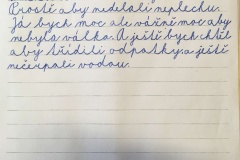 Prostě aby nedělali neplechu.
Já bych moc ale vážně moc aby
nebyla válka. A ještě bych chtěl
aby třídili odpatky a ještě
nečerpali vodou.